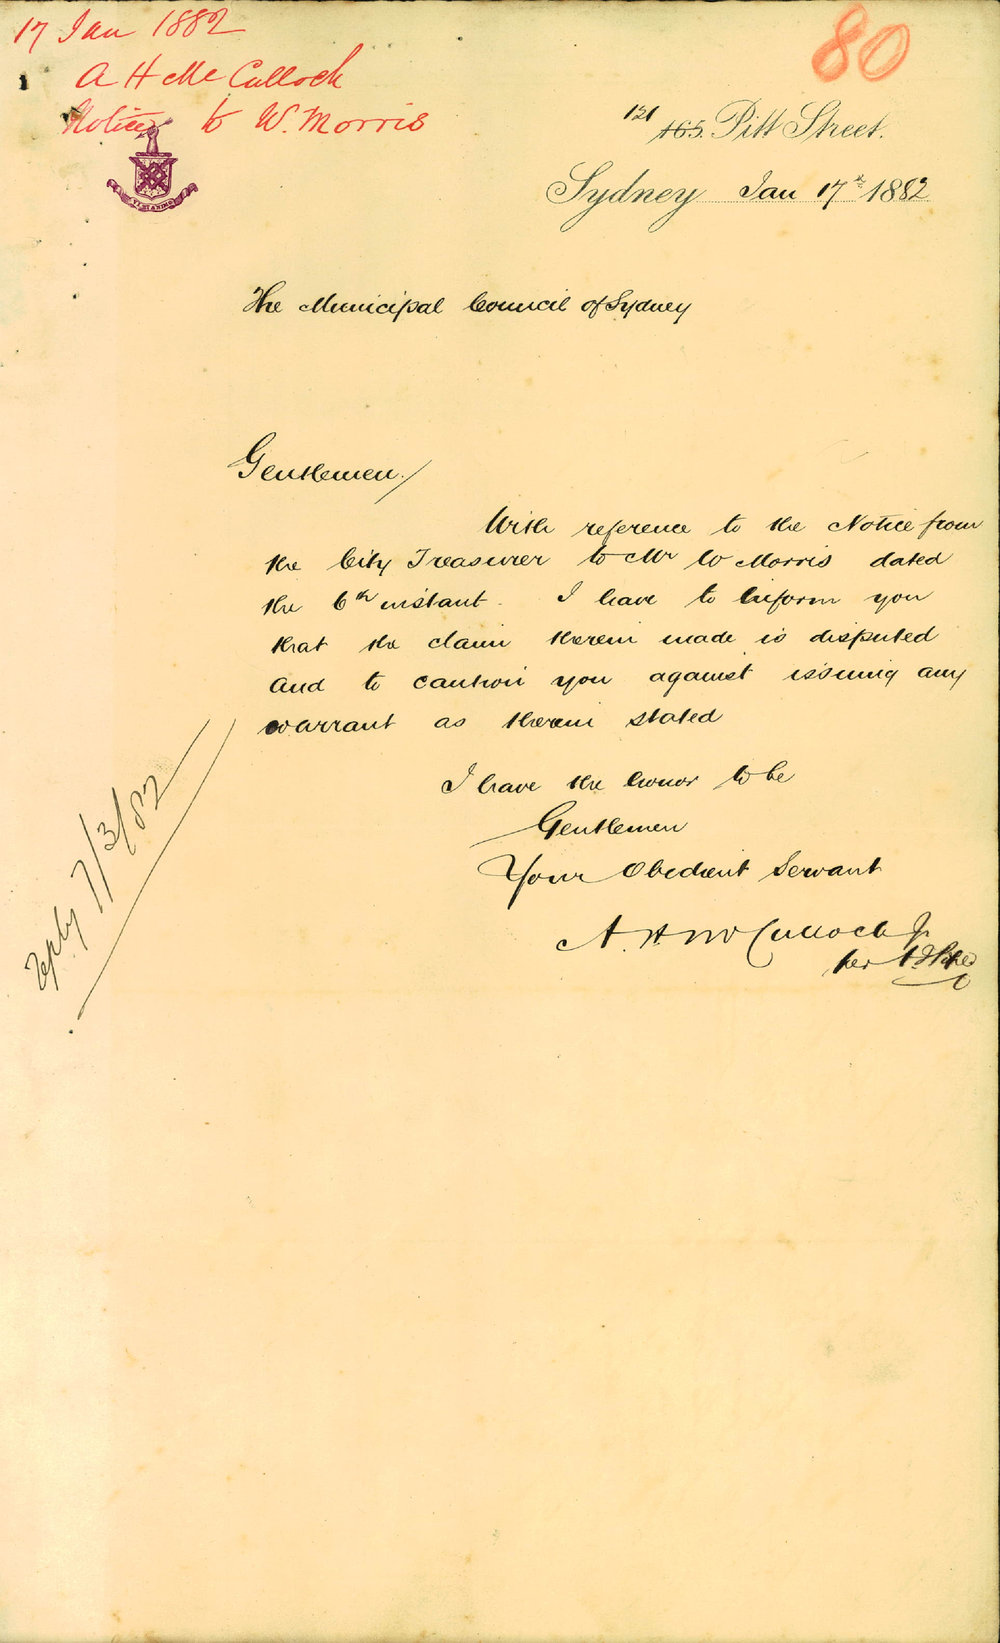 17 Jan 1882
A H McCulloch
Notice to W. Morris
80
121
165. Pitt Street.
Sydney Jan 17th 1882
The Municipal Council of Sydney
Gentlemen/
With reference to the Notice from
the City Treasurer to Mr W Morris dated
the 6th instant. I have to inform you
that the claim therein made is disputed
and to caution you against issuing any
warrant as therein stated
I have the honor to be
Gentlemen
Your Obedient Servant
A. H McCulloch Jr
per
Reply 7/3/82